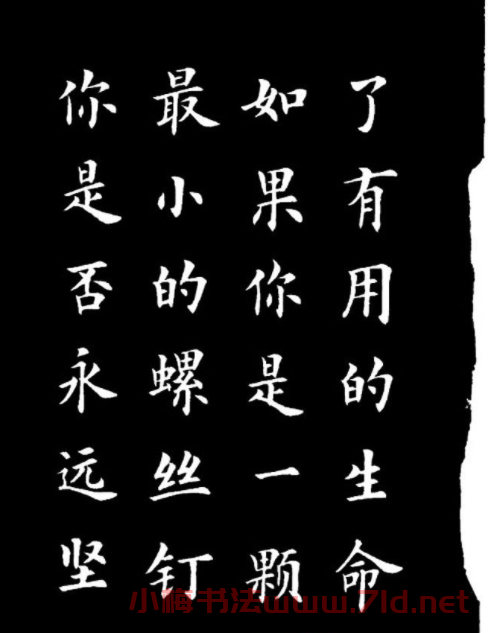 了有用的生命
如果你是一颗
最小的螺丝钉
你是否永远坚
小梅书法www.7ld.net